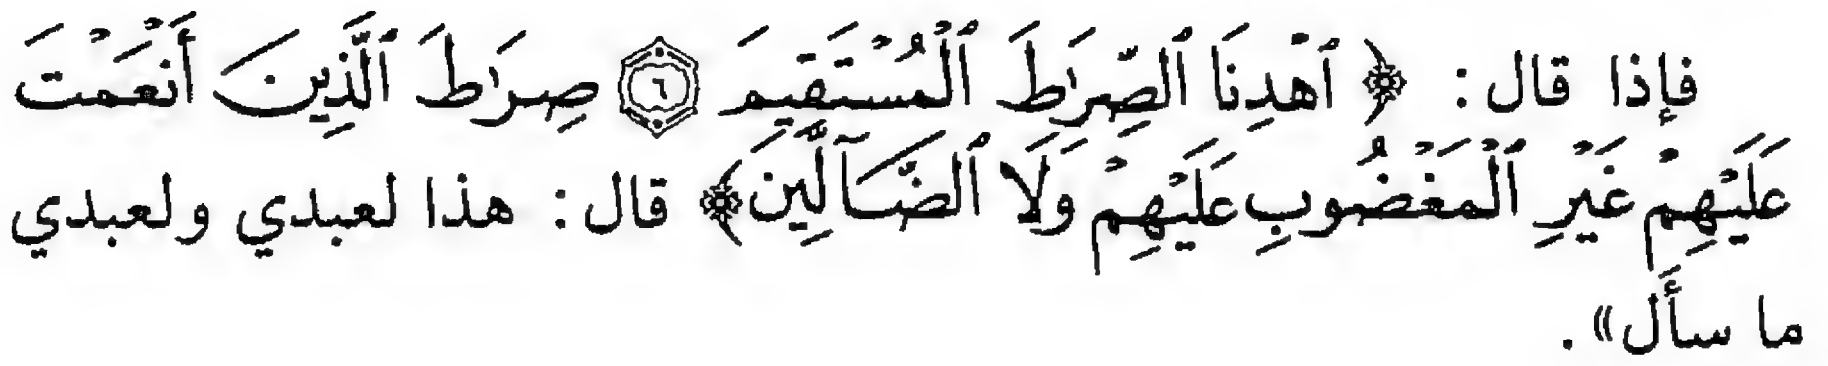 فإذا قال: ﴿ٱهۡدِنَا ٱلصِّرَٰطَ ٱلۡمُسۡتَقِيمَ ٦ صِرَٰطَ ٱلَّذِينَ أَنۡعَمۡتَ
عَلَيۡهِمۡ غَيۡرِ ٱلۡمَغۡضُوبِ عَلَيۡهِمۡ وَلَا ٱلضَّآلِّينَ﴾ قال: هذا لعبدي ولعبدي
ما سأَل».